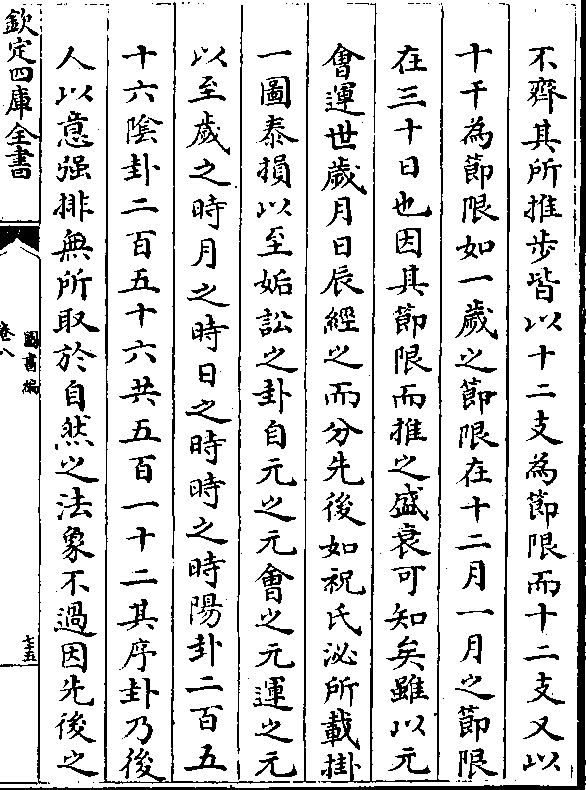 不齊其所推步皆以十二支為節限而十二支又以
十干為節限如一歲之節限在十二月一月之節限
在三十日也因其節限而推之盛衰可知矣雖以元
會運世歲月日辰經之而分先後如祝氏泌所載掛
一圖泰損以至姤訟之卦自元之元會之元運之元
以至歲之時月之時日之時時之時陽卦二百五
十六陰卦二百五十六共五百一十二其序卦乃後
人以意强排無所取於自然之法象不過因先後之
欽定四庫全書
圖書編
卷八
七五